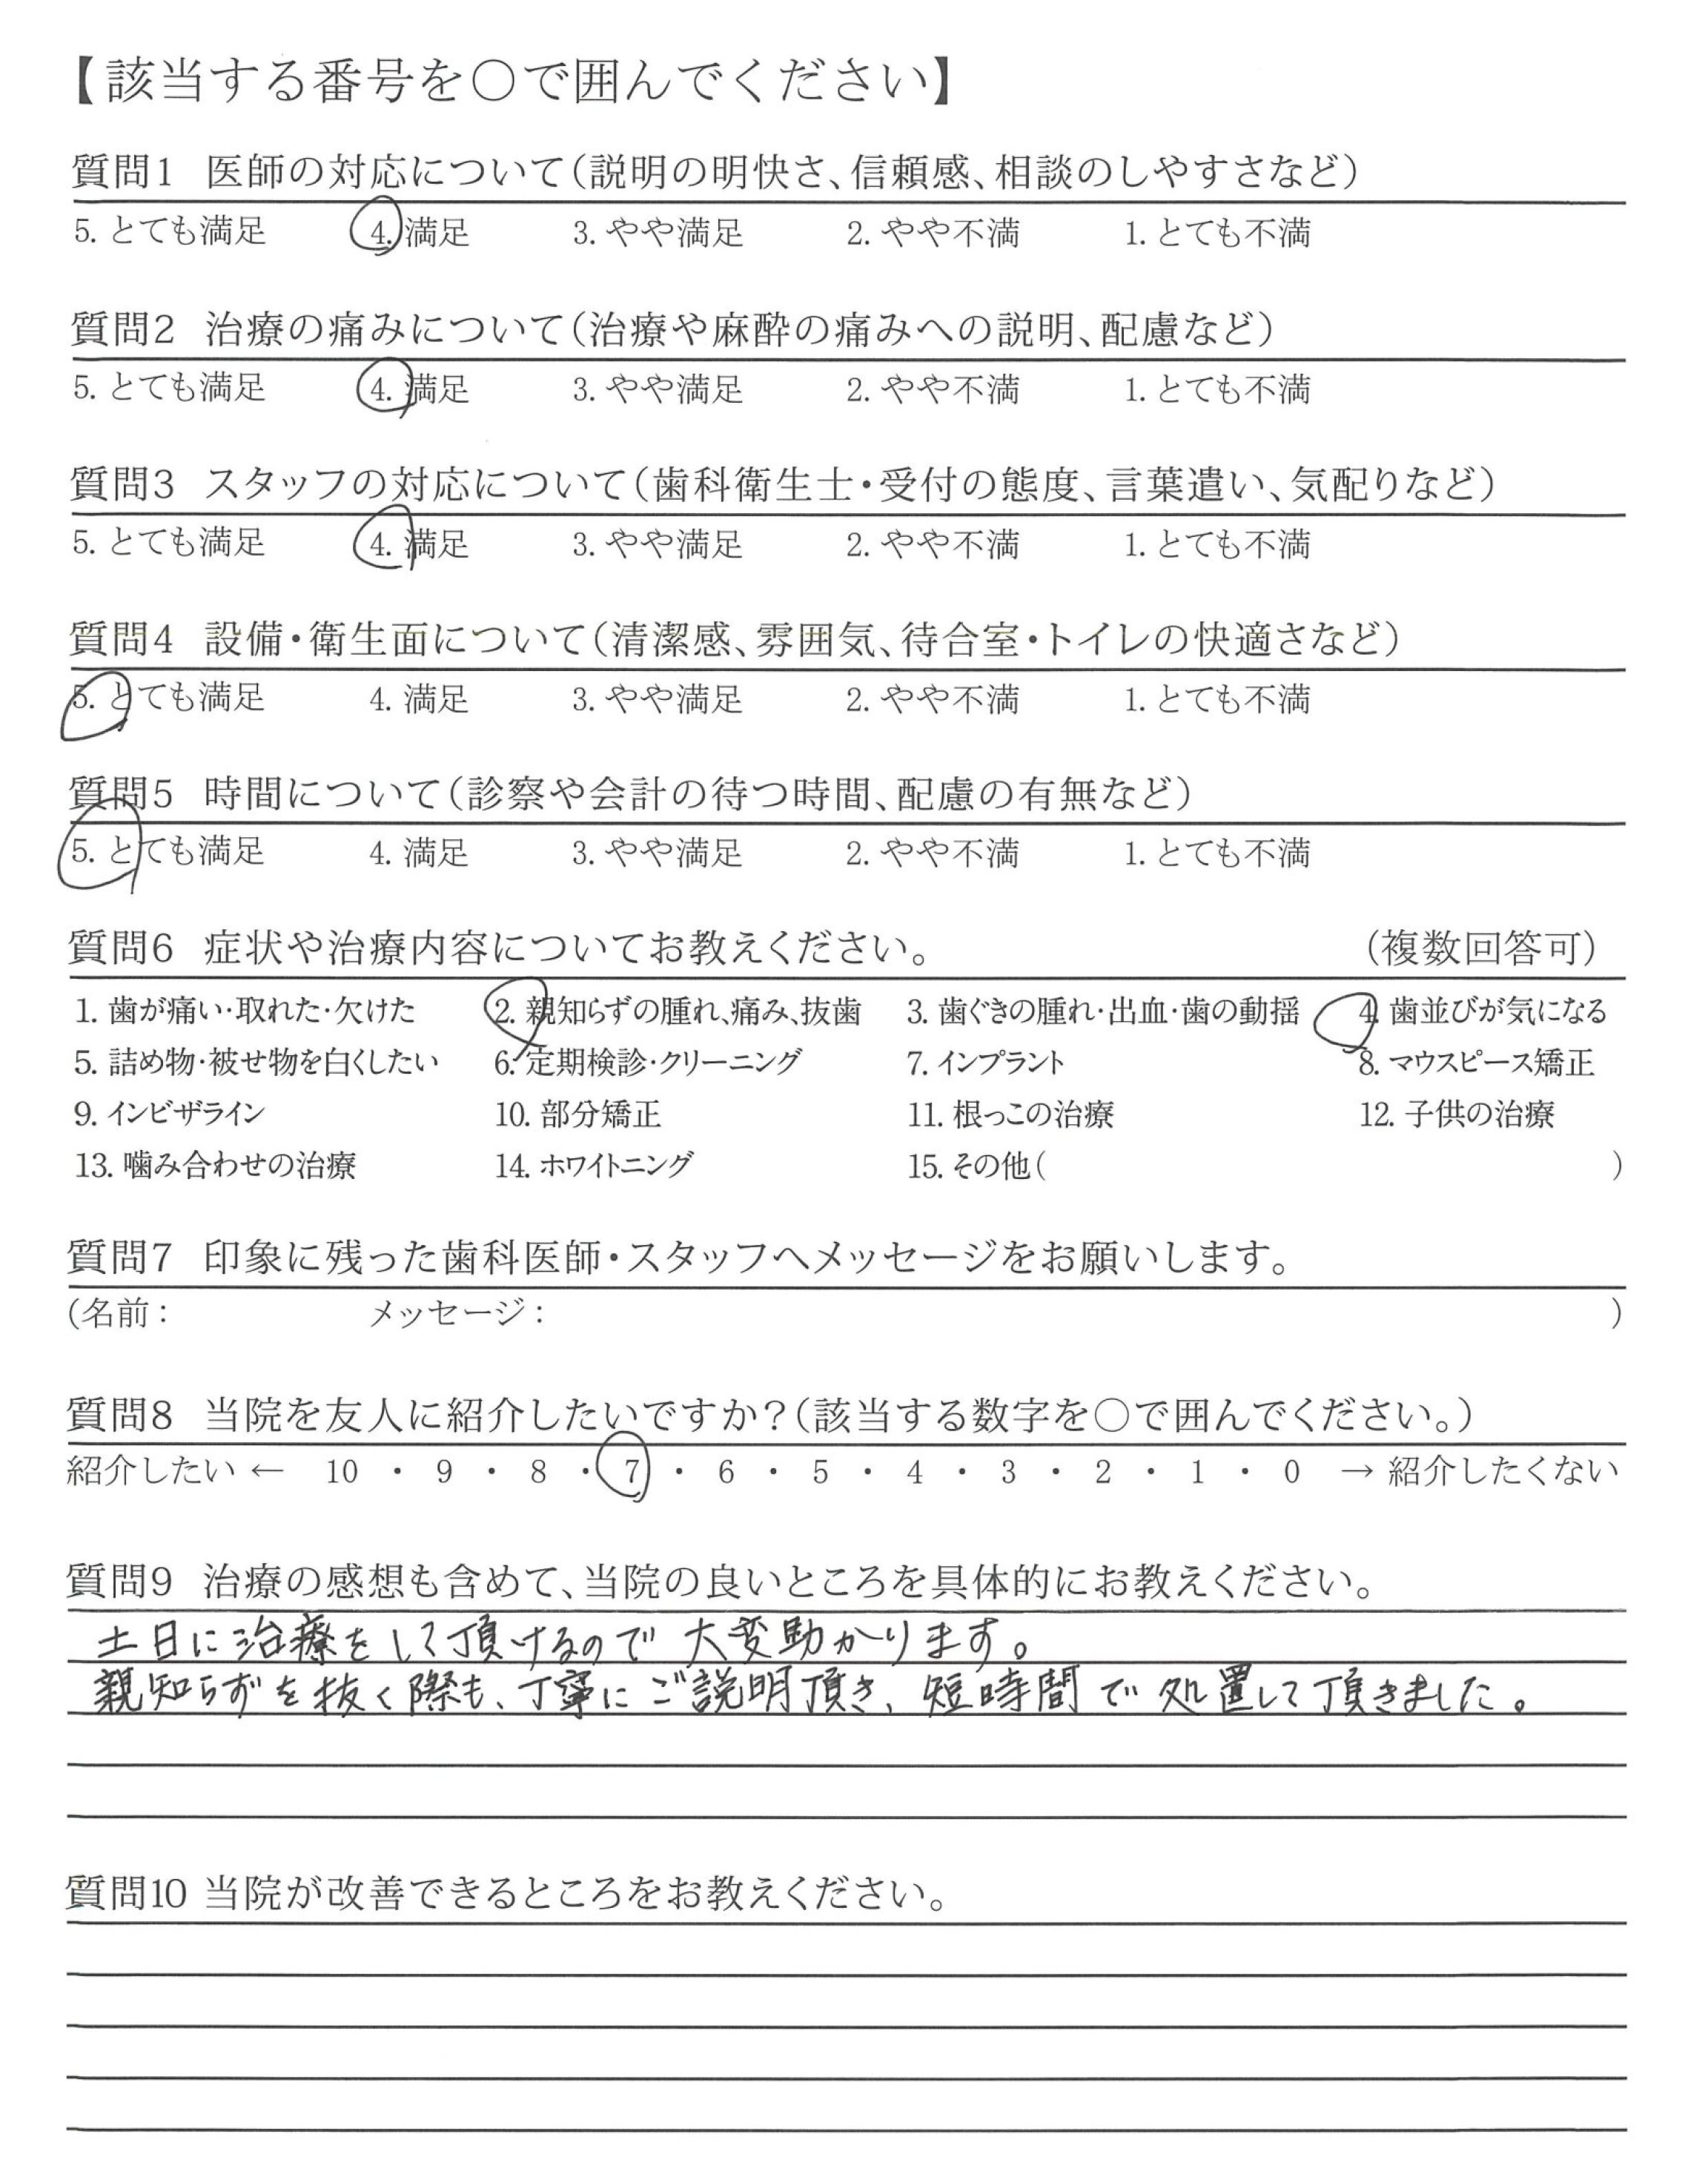 【該当する番号を○で囲んでください】
質問1 医師の対応について(説明の明快さ、信頼感、相談のしやすさなど)
5. とても満足 4. 満足 3. やや満足 2. やや不満 1. とても不満
質問2 治療の痛みについて(治療や麻酔の痛みへの説明、配慮など)
5. とても満足 4. 満足 3. やや満足 2. やや不満 1. とても不満
質問3 スタッフの対応について(歯科衛生士・受付の態度、言葉遣い、気配りなど)
5. とても満足 4. 満足 3. やや満足 2. やや不満 1. とても不満
質問4 設備・衛生面について(清潔感、雰囲気、待合室・トイレの快適さなど)
5. とても満足 4. 満足 3. やや満足 2. やや不満 1. とても不満
質問5 時間について(診察や会計の待つ時間、配慮の有無など)
5. とても満足 4. 満足 3. やや満足 2. やや不満 1. とても不満
質問6 症状や治療内容についてお教えください。 (複数回答可)
1. 歯が痛い・取れた・欠けた 2. 親知らずの腫れ、痛み、抜歯 3. 歯ぐきの腫れ・出血・歯の動揺 4. 歯並びが気になる
5. 詰め物・被せ物を白くしたい 6. 定期検診・クリーニング 7. インプラント 8. マウスピース矯正
9. インビザライン 10. 部分矯正 11. 根っこの治療 12. 子供の治療
13. 噛み合わせの治療 14. ホワイトニング 15. その他( )
質問7 印象に残った歯科医師・スタッフへメッセージをお願いします。
(名前: メッセージ: )
質問8 当院を友人に紹介したいですか?(該当する数字を○で囲んでください。)
紹介したい ← 10 ・ 9 ・ 8 ・ 7 ・ 6 ・ 5 ・ 4 ・ 3 ・ 2 ・ 1 ・ 0 → 紹介したくない
質問9 治療の感想も含めて、当院の良いところを具体的にお教えください。
土日に治療をして頂けるので大変助かります。
親知らずを抜く際も、丁寧にご説明頂き、短時間で処置して頂きました。
質問10 当院が改善できるところをお教えください。